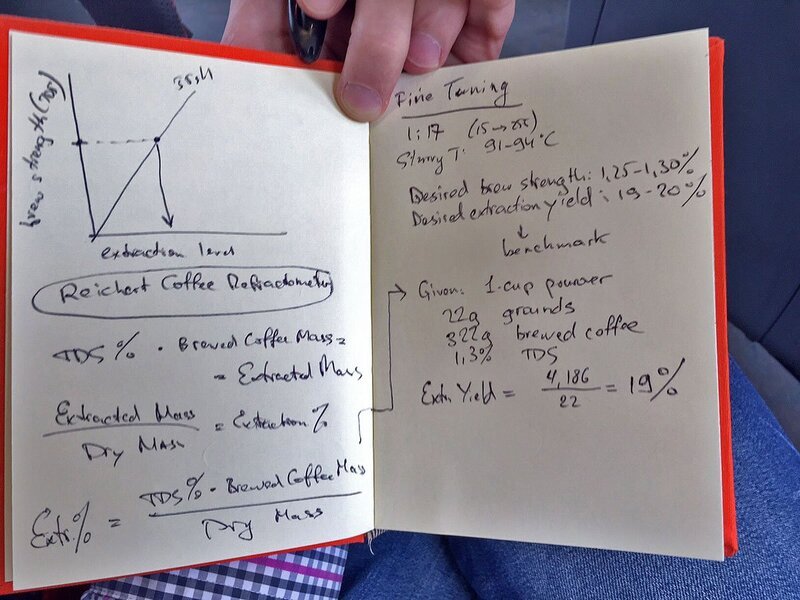 brew strength (TDS)
extraction level
Reichert Coffee Refractometer
TDS% · Brewed Coffee Mass =
= Extracted Mass
Extracted Mass
Dry Mass
= Extraction %
Extr.% =
TDS% · Brewed Coffee Mass
Dry Mass
Fine Tuning
1:17
Slurry T: 91-94°C
Desired brew strength: 1,25-1,30%
Desired extraction yield: 19-20%
↓
benchmark
Given: 1-cup pourover
22g grounds
322g brewed coffee
1,3% TDS
Extr. Yield = 4,186 / 22 = 19%